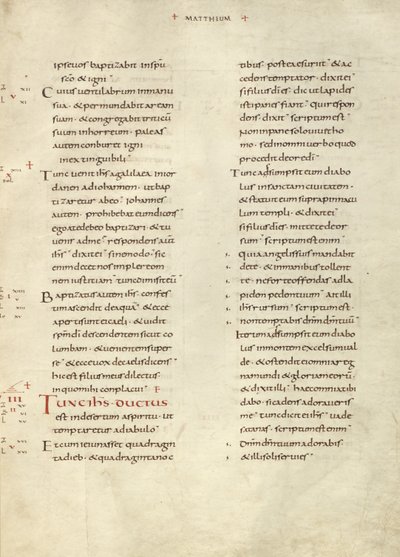 + MATTHIUM +
ipse uos baptizabit in spu
sco & igni
Cuius uentilabrum in manu
sua · & permundabit aream
suam · & congregabit triticu
suum in horreum · paleas
autem conburet igni
inextinguibili
Tunc uenit ihs a galilaea in ior
danen ad iohannem · ut bap
tizaretur ab eo · Iohannes
autem · prohibebat eum dicens
ego a te debeo baptizari · & tu
uenis ad me · respondens aut
ihs · dixit ei sine modo · sic
enim decet nos implere om
nem iustitiam tunc dimisit eu
Baptizatus autem ihs · confes
tim ascendit de aqua · & ecce
aperti sunt ei caeli · & uidit
spm di descendentem sicut co
lumbam · & uenientem super
se · & ecce uox de caelis dicens
hic est filius meus dilectus
in quo mihi complacui
TUNC IHS · DUCTUS
est in desertum a spiritu · ut
temptaretur a diabolo
Et cum ieiunasset quadragin
ta dieb · & quadraginta noc
tibus postea esuriit & ac
cedens temptator · dixit ei
si filius di es · dic ut lapides
isti panes fiant · Qui respon
dens · dixit · scriptum est
non in pane solo uiuit ho
mo · sed in omni uerbo quod
procedit de ore di
Tunc adsumpsit eum diabo
lus in sanctam ciuitatem ·
& statuit eum supra pinnacu
lum templi · & dixit ei
si filius di es · mitte te deor
sum · scriptum est enim
quia angelis suis mandabit
de te · & in manibus tollent
te · ne forte offendas ad la
pidem pedem tuum · Ait illi
ihs rursum · scriptum est ·
non temptabis dnm dm tuum
Iterum adsumpsit eum diabo
lus in montem excelsum ual
de · & ostendit ei omnia reg
na mundi · & gloriam eorum
& dixit illi · haec omnia tibi
dabo · si cadens adoraueris
me · tunc dicit ei ihs · uade
satanas · scriptum est enim
dnm dm tuum adorabis
& illi soli seruies